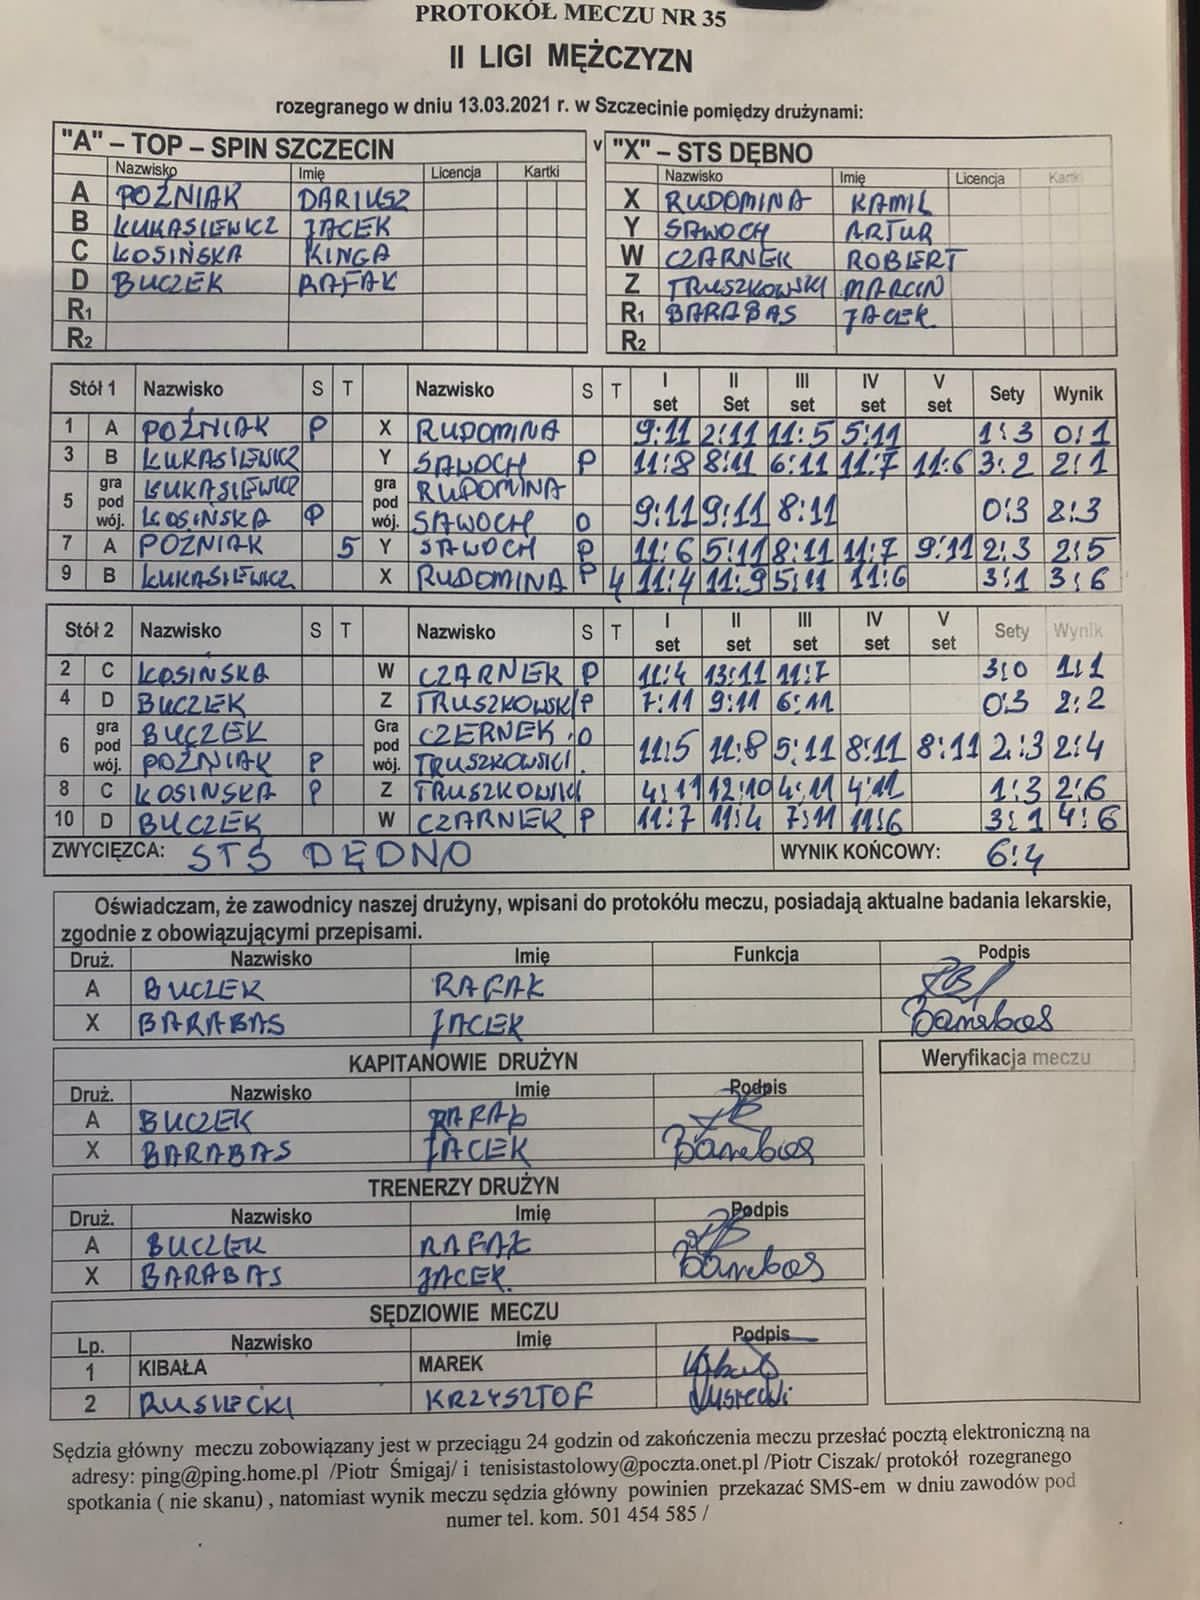 PROTOKÓŁ MECZU NR 35
II LIGI MĘŻCZYZN
rozegranego w dniu 13.03.2021 r. w Szczecinie pomiędzy drużynami:
"A" – TOP – SPIN SZCZECIN v "X" – STS DĘBNO
Nazwisko Imię Licencja Kartki Nazwisko Imię Licencja Kartki
A POŹNIAK DARIUSZ X RUDOMINA KAMIL
B ŁUKASIEWICZ JACEK Y SAWOCH ARTUR
C KOSIŃSKA KINGA W CZARNEK ROBERT
D BUCZEK RAFAŁ Z TRUSZKOWSKI MARCIN
R1 R1 BARABAS JACEK
R2 R2
Stół 1 Nazwisko S T Nazwisko S T I set II Set III set IV set V set Sety Wynik
1 A POŹNIAK P X RUDOMINA 9:11 2:11 11:5 5:11 1:3 0:1
3 B ŁUKASIEWICZ Y SAWOCH P 11:8 8:11 6:11 11:7 11:6 3:2 2:1
5 gra pod wój. ŁUKASIEWICZ gra pod wój. RUDOMINA
KOSIŃSKA P SAWOCH O 9:11 9:11 8:11 0:3 2:3
7 A POŹNIAK 5 Y SAWOCH P 11:6 5:11 8:11 11:7 9:11 2:3 2:5
9 B ŁUKASIEWICZ X RUDOMINA P 4 11:4 11:9 5:11 11:6 3:1 3:6
Stół 2 Nazwisko S T Nazwisko S T I set II set III set IV set V set Sety Wynik
2 C KOSIŃSKA W CZARNEK P 11:4 13:11 11:7 3:0 1:1
4 D BUCZEK Z TRUSZKOWSKI P 7:11 9:11 6:11 0:3 2:2
6 gra pod wój. BUCZEK Gra pod wój. CZERNEK O
POŹNIAK P TRUSZKOWSKI 11:5 11:8 5:11 8:11 8:11 2:3 2:4
8 C KOSINSKA P Z TRUSZKOWSKI 4:11 12:10 4:11 4:11 1:3 2:6
10 D BUCZEK W CZARNEK P 11:7 11:4 7:11 11:6 3:1 4:6
ZWYCIĘZCA: STS DĘDNO WYNIK KOŃCOWY: 6:4
Oświadczam, że zawodnicy naszej drużyny, wpisani do protokółu meczu, posiadają aktualne badania lekarskie,
zgodnie z obowiązującymi przepisami.
Druż. Nazwisko Imię Funkcja Podpis
A BUCZEK RAFAŁ
X BARABAS JACEK Barabas
KAPITANOWIE DRUŻYN Weryfikacja meczu
Druż. Nazwisko Imię Podpis
A BUCZEK RAFAŁ
X BARABAS JACEK Barabas
TRENERZY DRUŻYN
Druż. Nazwisko Imię Podpis
A BUCZEK RAFAŁ
X BARABAS JACEK Barabas
SĘDZIOWIE MECZU
Lp. Nazwisko Imię Podpis
1 KIBAŁA MAREK
2 RUSIECKI KRZYSZTOF Rusiecki
Sędzia główny meczu zobowiązany jest w przeciągu 24 godzin od zakończenia meczu przesłać pocztą elektroniczną na
adresy: ping@ping.home.pl /Piotr Śmigaj/ i tenisistastolowy@poczta.onet.pl /Piotr Ciszak/ protokół rozegranego
spotkania ( nie skanu) , natomiast wynik meczu sędzia główny powinien przekazać SMS-em w dniu zawodów pod
numer tel. kom. 501 454 585 /